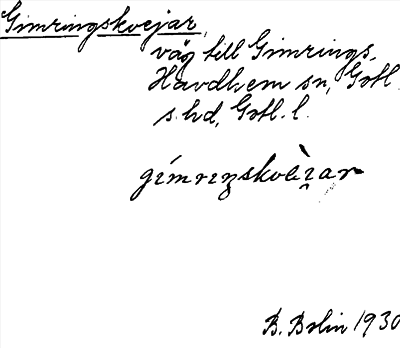 Gimringskvejar,
väg till Gimrings,
Havdhem sn, Gotl.
s. hd, Gotl. l.
B. Bolin 1930